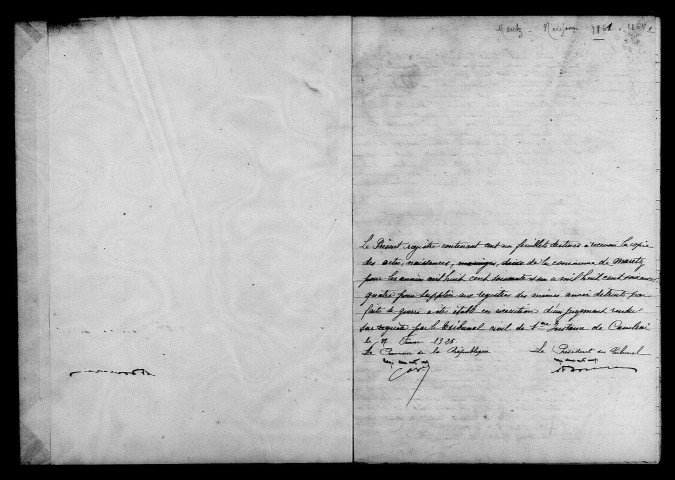 Maretz - Naissances 1861 - 1864 1
Le Présent registre contenant cent un feuillets destinés à recevoir la copie
des actes, naissances, mariages, décès de la commune de Maretz
pour les années mil huit cent soixante & un à mil huit cent soixante
quatre pour suppléer aux registres des mêmes années détruits par
faits de guerre a été établi en exécution d'un jugement rendu
sur requête par le tribunal civil de 1ère Instance de Cambrai
le
Le Procureur de la République Le Président du Tribunal